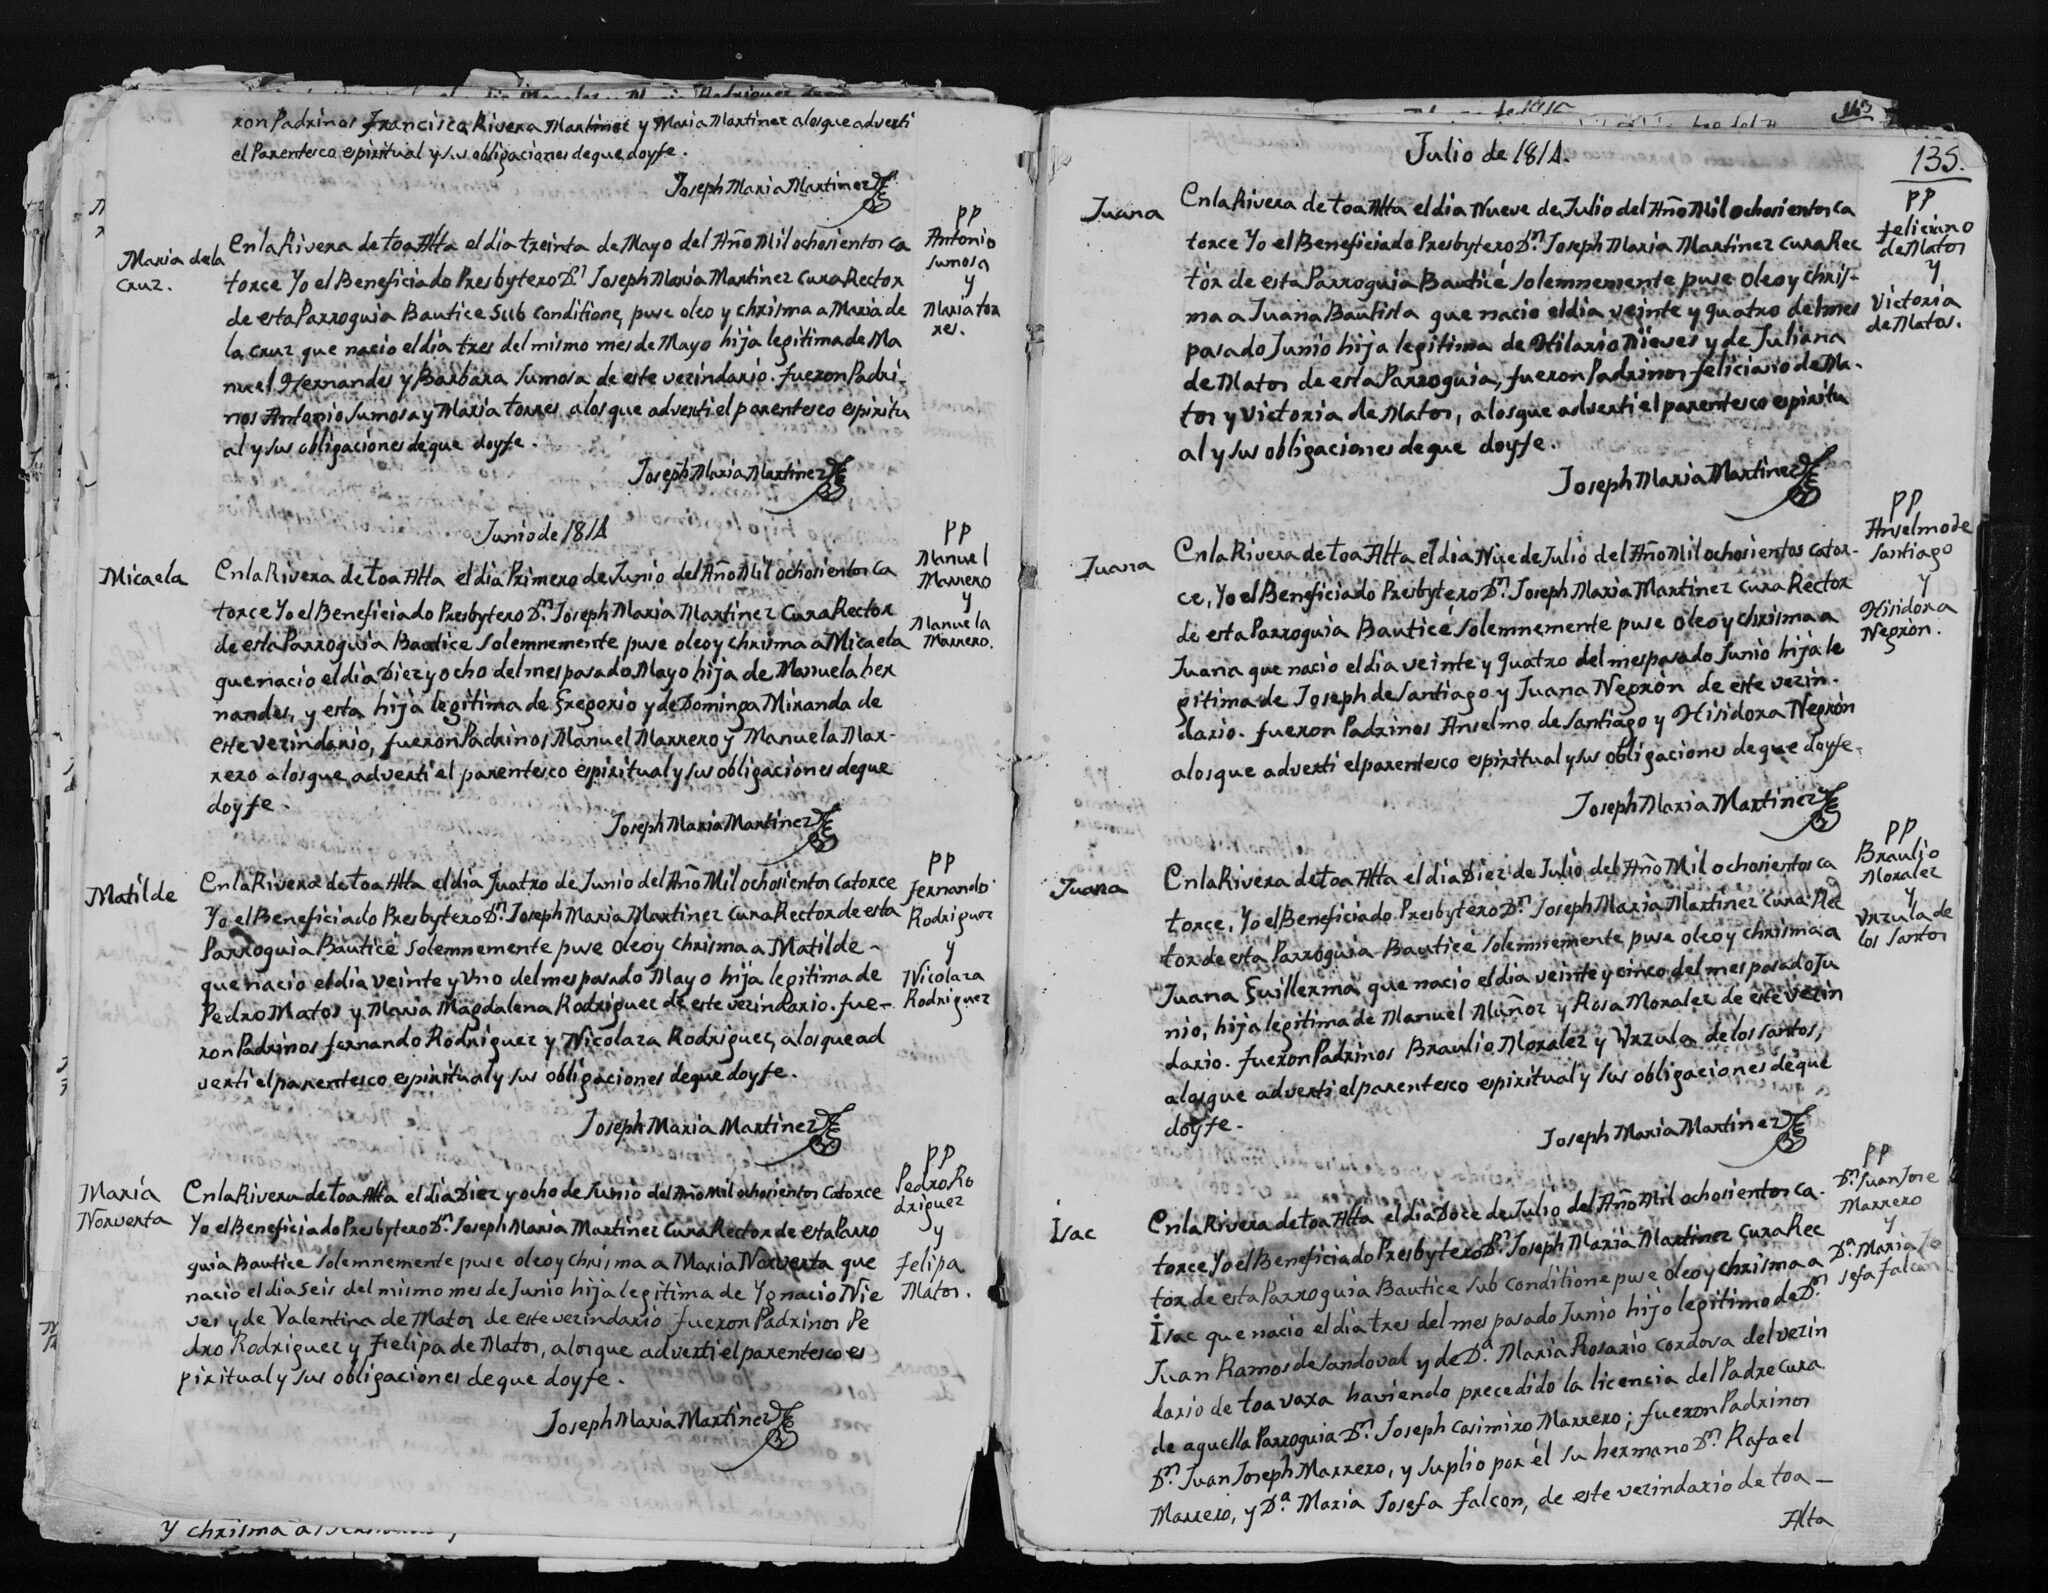 ron Padrinos Francisco Rivera Martinez y Maria Martinez alosque adverti
el Parentesco espiritual y sus obligaciones deque doyfe.
Joseph Maria Martinez
Maria dela
Cruz.
EnlaRivera de toa Alta el dia treinta de Mayo del Año Mil ochosientos ca
torce Yo el Beneficiado Presbytero Dn. Joseph Maria Martinez Cura Rector
de esta Parroquia Bautice Sub Conditione, puse oleo y chrisma a Maria de
la Cruz que nacio el dia tres del mismo mes de Mayo hija legitima de Ma
nuel Hernandes y Barbara Sumosa de este vezindario. fueron Padri-
nos Antonio Sumosa y Maria torres alosque adverti el parentesco espiritu
al y sus obligaciones deque doyfe.
Joseph Maria Martinez
PP
Antonio
Sumosa
y
Maria tor
res.
Junio de 1814
Micaela
EnlaRivera de toa Alta el dia Primero de Junio del Año Mil ochosientos ca
torce Yo el Beneficiado Presbytero Dn. Joseph Maria Martinez Cura Rector
de esta Parroquia Bautice Solemnemente puse oleo y chrisma a Micaela
que nacio el dia Diez y ocho del mes pasado Mayo hija de Manuela her
nandes, y esta hija legitima de Gregorio y de Dominga Miranda de
este vezindario, fueron Padrinos Manuel Marrero y Manuela Mar-
rero alosque adverti el parentesco espiritual y sus obligaciones deque
doyfe.
Joseph Maria Martinez
PP
Manuel
Marrero
y
Manuela
Marrero.
Matilde
EnlaRivera de toa Alta el dia quatro de Junio del Año Mil ochosientos catorce
Yo el Beneficiado Presbytero Dn. Joseph Maria Martinez Cura Rector de esta
Parroquia Bauticé Solemnemente puse oleo y chrisma a Matilde -
que nacio el dia veinte y Vno del mes pasado Mayo hija legitima de
Pedro Matos y Maria Magdalena Rodriguez de este vezindario. fue-
ron Padrinos fernando Rodriguez y Nicolaza Rodriguez, alosque ad
verti el parentesco espiritual y sus obligaciones deque doyfe.
Joseph Maria Martinez
PP
fernando
Rodriguez
y
Nicolaza
Rodriguez
Maria
Norverta
EnlaRivera de toa Alta el dia Diez y ocho de Junio del Año Mil ochosientos Catorce
Yo el Beneficiado Presbytero Dn. Joseph Maria Martinez Cura Rector de esta Parro
quia Bautice Solemnemente puse oleo y chrisma a Maria Norverta que
nacio el dia seis del mismo mes de Junio hija legitima de Ygnacio Nie
ves y de Valentina de Matos de este vezindario fueron Padrinos Pe
dro Rodriguez y Felipa de Matos, alosque adverti el parentesco es
piritual y sus obligaciones deque doyfe.
Joseph Maria Martinez
PP
Pedro Ro
driguez
y
Felipa
Matos.
y chrisma a
Julio de 1814.
135.
Juana
EnlaRivera de toa Alta el dia Nueve de Julio del Año Mil ochosientos ca
torce Yo el Beneficiado Presbytero Dn. Joseph Maria Martinez Cura Rec
tor de esta Parroquia Bauticé Solemnemente puse oleo y chris-
ma a Juana Bautista que nacio el dia veinte y quatro del mes
pasado Junio hija legitima de Hilario Nieves y de Juliana
de Matos de esta Parroquia, fueron Padrinos feliciano de Ma-
tos y Victoria de Matos, alosque adverti el parentesco espiritu
al y sus obligaciones deque doyfe.
Joseph Maria Martinez
PP
feliciano
de Matos
y
Victoria
de Matos.
Juana
EnlaRivera de toa Alta el dia Nue de Julio del Año Mil ochosientos cator-
ce, Yo el Beneficiado Presbytero Dn. Joseph Maria Martinez Cura Rector
de esta Parroquia Bauticé Solemnemente puse oleo y chrisma a
Juana que nacio el dia veinte y quatro del mes pasado Junio hija le
gitima de Joseph de Santiago y Juana Negrón de este vezin-
dario. fueron Padrinos Anselmo de Santiago y Hisidora Negrón
alosque adverti el parentesco espiritual y sus obligaciones deque doyfe.
Joseph Maria Martinez
PP
Anselmo de
Santiago
y
Hisidora
Negrón.
Juana
EnlaRivera de toa Alta el dia Diez de Julio del Año Mil ochosientos ca
torce, Yo el Beneficiado Presbytero Dn. Joseph Maria Martinez Cura Rec
tor de esta Parroquia Bauticé Solemnemente puse oleo y chrisma a
Juana Guillerma que nacio el dia veinte y cinco del mes pasado Ju
nio, hija legitima de Manuel Muñoz y Rosa Morales de este vezin
dario. fueron Padrinos Braulio Morales y Vrzula de los Santos,
alosque adverti el parentesco espiritual y sus obligaciones deque
doyfe.
Joseph Maria Martinez
PP
Braulio
Morales
y
Vrzula de
los Santos
Isac
EnlaRivera de toa Alta el dia Doce de Julio del Año Mil ochosientos ca-
torce Yo el Beneficiado Presbytero Dn. Joseph Maria Martinez Cura Rec
tor de esta Parroquia Bautice Sub Conditione puse oleo y chrisma a
Isac que nacio el dia tres del mes pasado Junio hijo legitimo de Dn
Juan Ramos de Sandoval y de Da. Maria Rosario Cordova del vezin
dario de toa vaxa haviendo precedido la licencia del Padre Cura
de aquella Parroquia Dn. Joseph Casimiro Marrero; fueron Padrinos
Dn. Juan Joseph Marrero, y suplio por él su hermano Dn. Rafael
Marrero, y Da. Maria Josefa Falcon, de este vezindario de toa -
Alta
PP
Dn. Juan Jose
Marrero
y
Da. Maria Jo
sefa Falcon